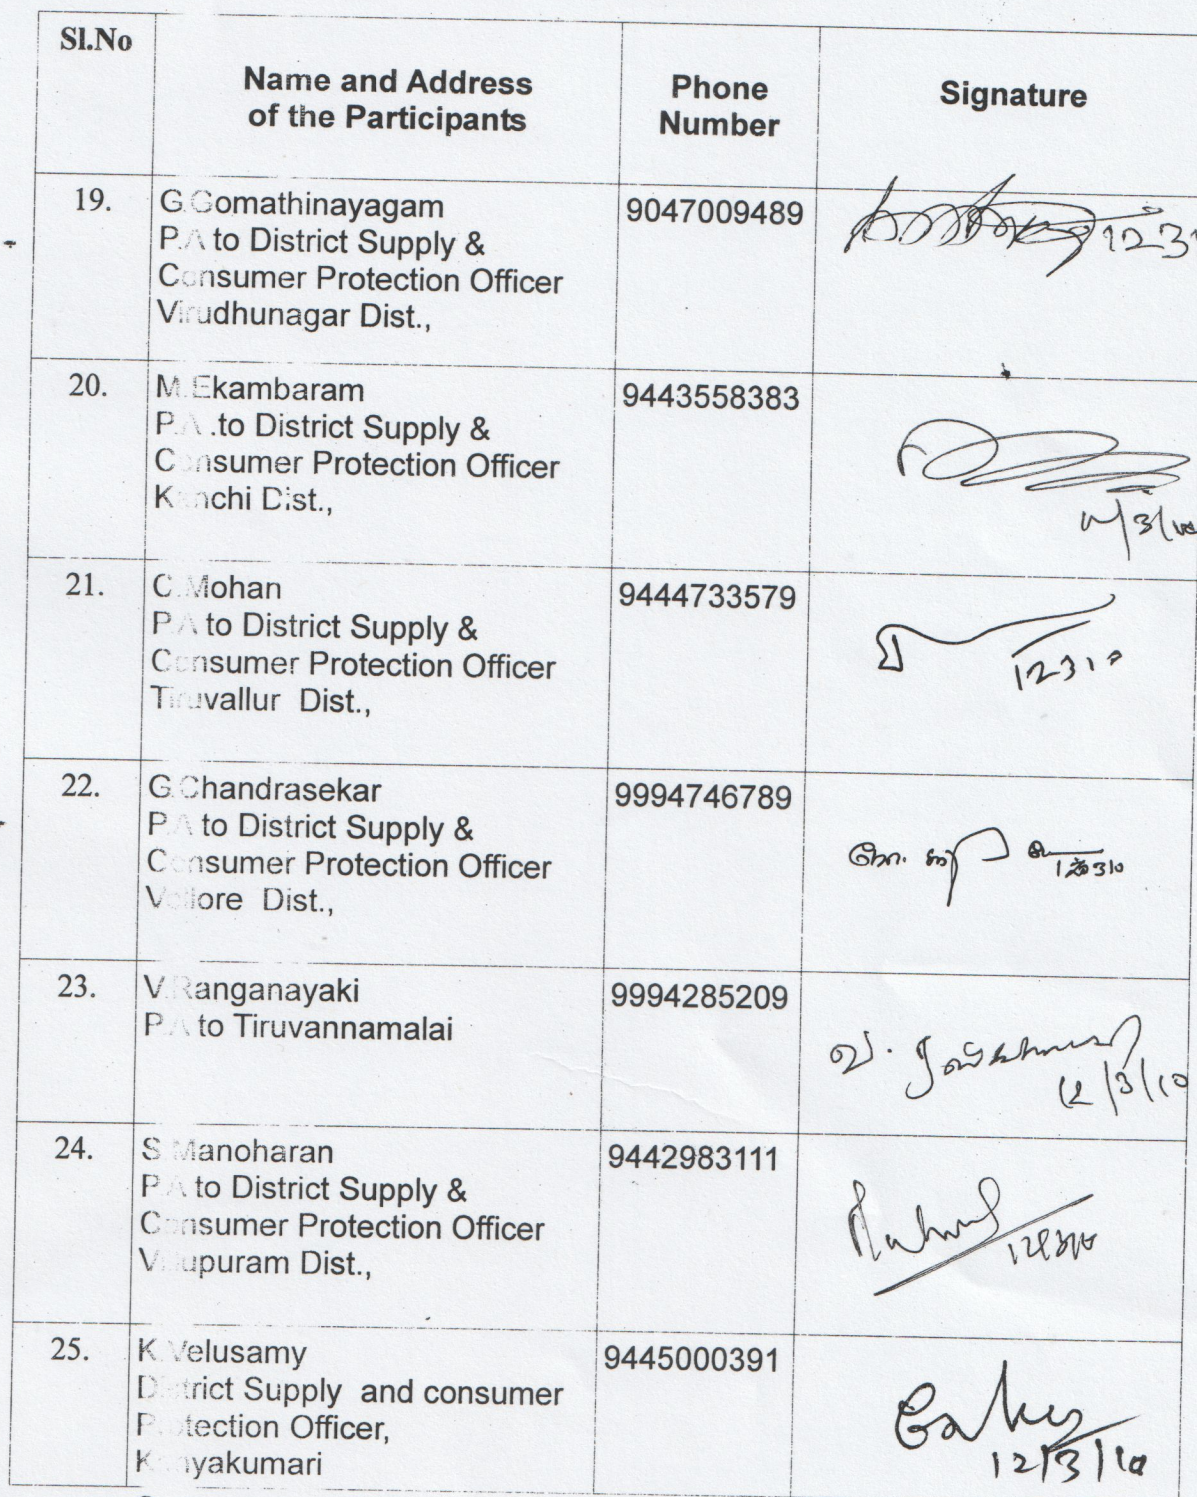 Sl.No
Name and Address
of the Participants
Phone
Number
Signature
19.
G.Gomathinayagam
P.A to District Supply &
Consumer Protection Officer
Virudhunagar Dist.,
9047009489
20.
M.Ekambaram
P.A .to District Supply &
Consumer Protection Officer
Kanchi Dist.,
9443558383
21.
C.Mohan
P.A to District Supply &
Consumer Protection Officer
Tiruvallur Dist.,
9444733579
12310
22.
G.Chandrasekar
P.A to District Supply &
Consumer Protection Officer
Vellore Dist.,
9994746789
23.
V.Ranganayaki
P.A to Tiruvannamalai
9994285209
12/3/10
24.
S.Manoharan
P.A to District Supply &
Consumer Protection Officer
Villupuram Dist.,
9442983111
25.
K.Velusamy
District Supply and consumer
Protection Officer,
Kanyakumari
9445000391
12/3/10